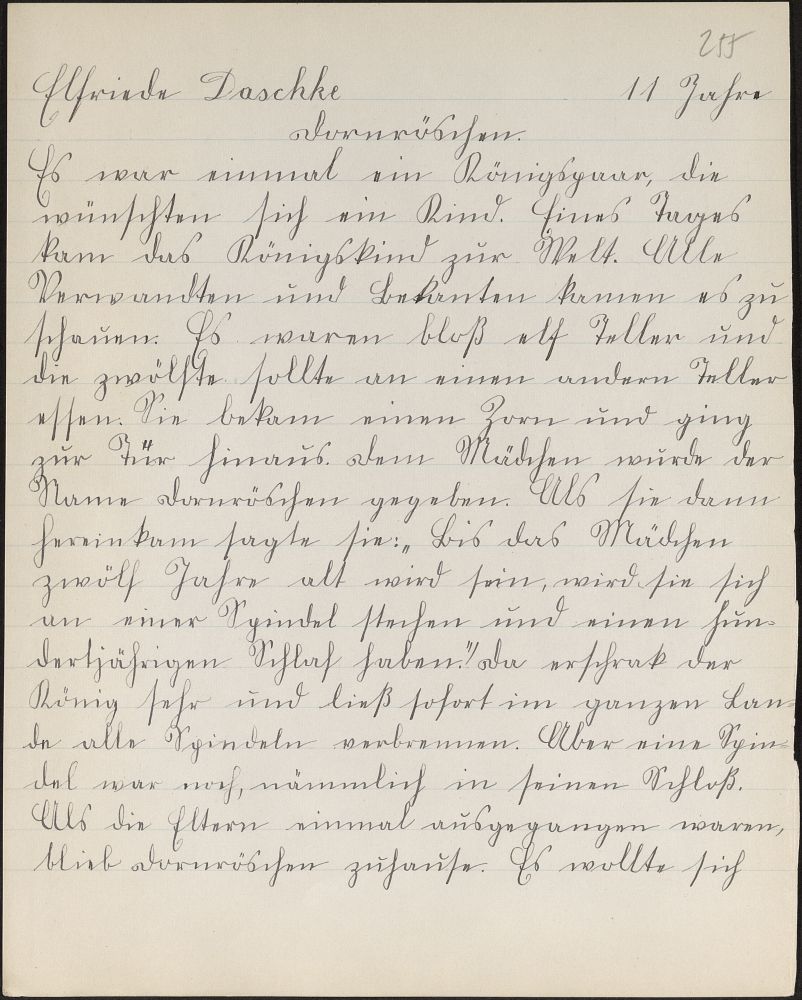 255
Elfriede Daschke 11 Jahre
Dornröschen.
Es war einmal ein Königspaar, die
wünschten sich ein Kind. Eines Tages
kam das Königskind zur Welt. Alle
Verwandten und Bekanten kamen es zu
schauen. Es waren bloß elf Teller und
die zwölfte sollte an einen andern Teller
essen. Sie bekam einen Zorn und ging
zur Tür hinaus. Dem Mädchen wurde der
Name Dornröschen gegeben. Als sie dann
hereinkam sagte sie: „Bis das Mädchen
zwölf Jahre alt wird sein, wird sie sich
an einer Spindel stechen und einen hun-
dertjährigen Schlaf haben."! Da erschrak der
König sehr und ließ sofort im ganzen Lan-
de alle Spindeln verbrennen. Aber eine Spin-
del war noch, nämmlich in seinen Schloß.
Als die Eltern einmal ausgegangen waren,
blieb Dornröschen zuhause. Es wollte sich